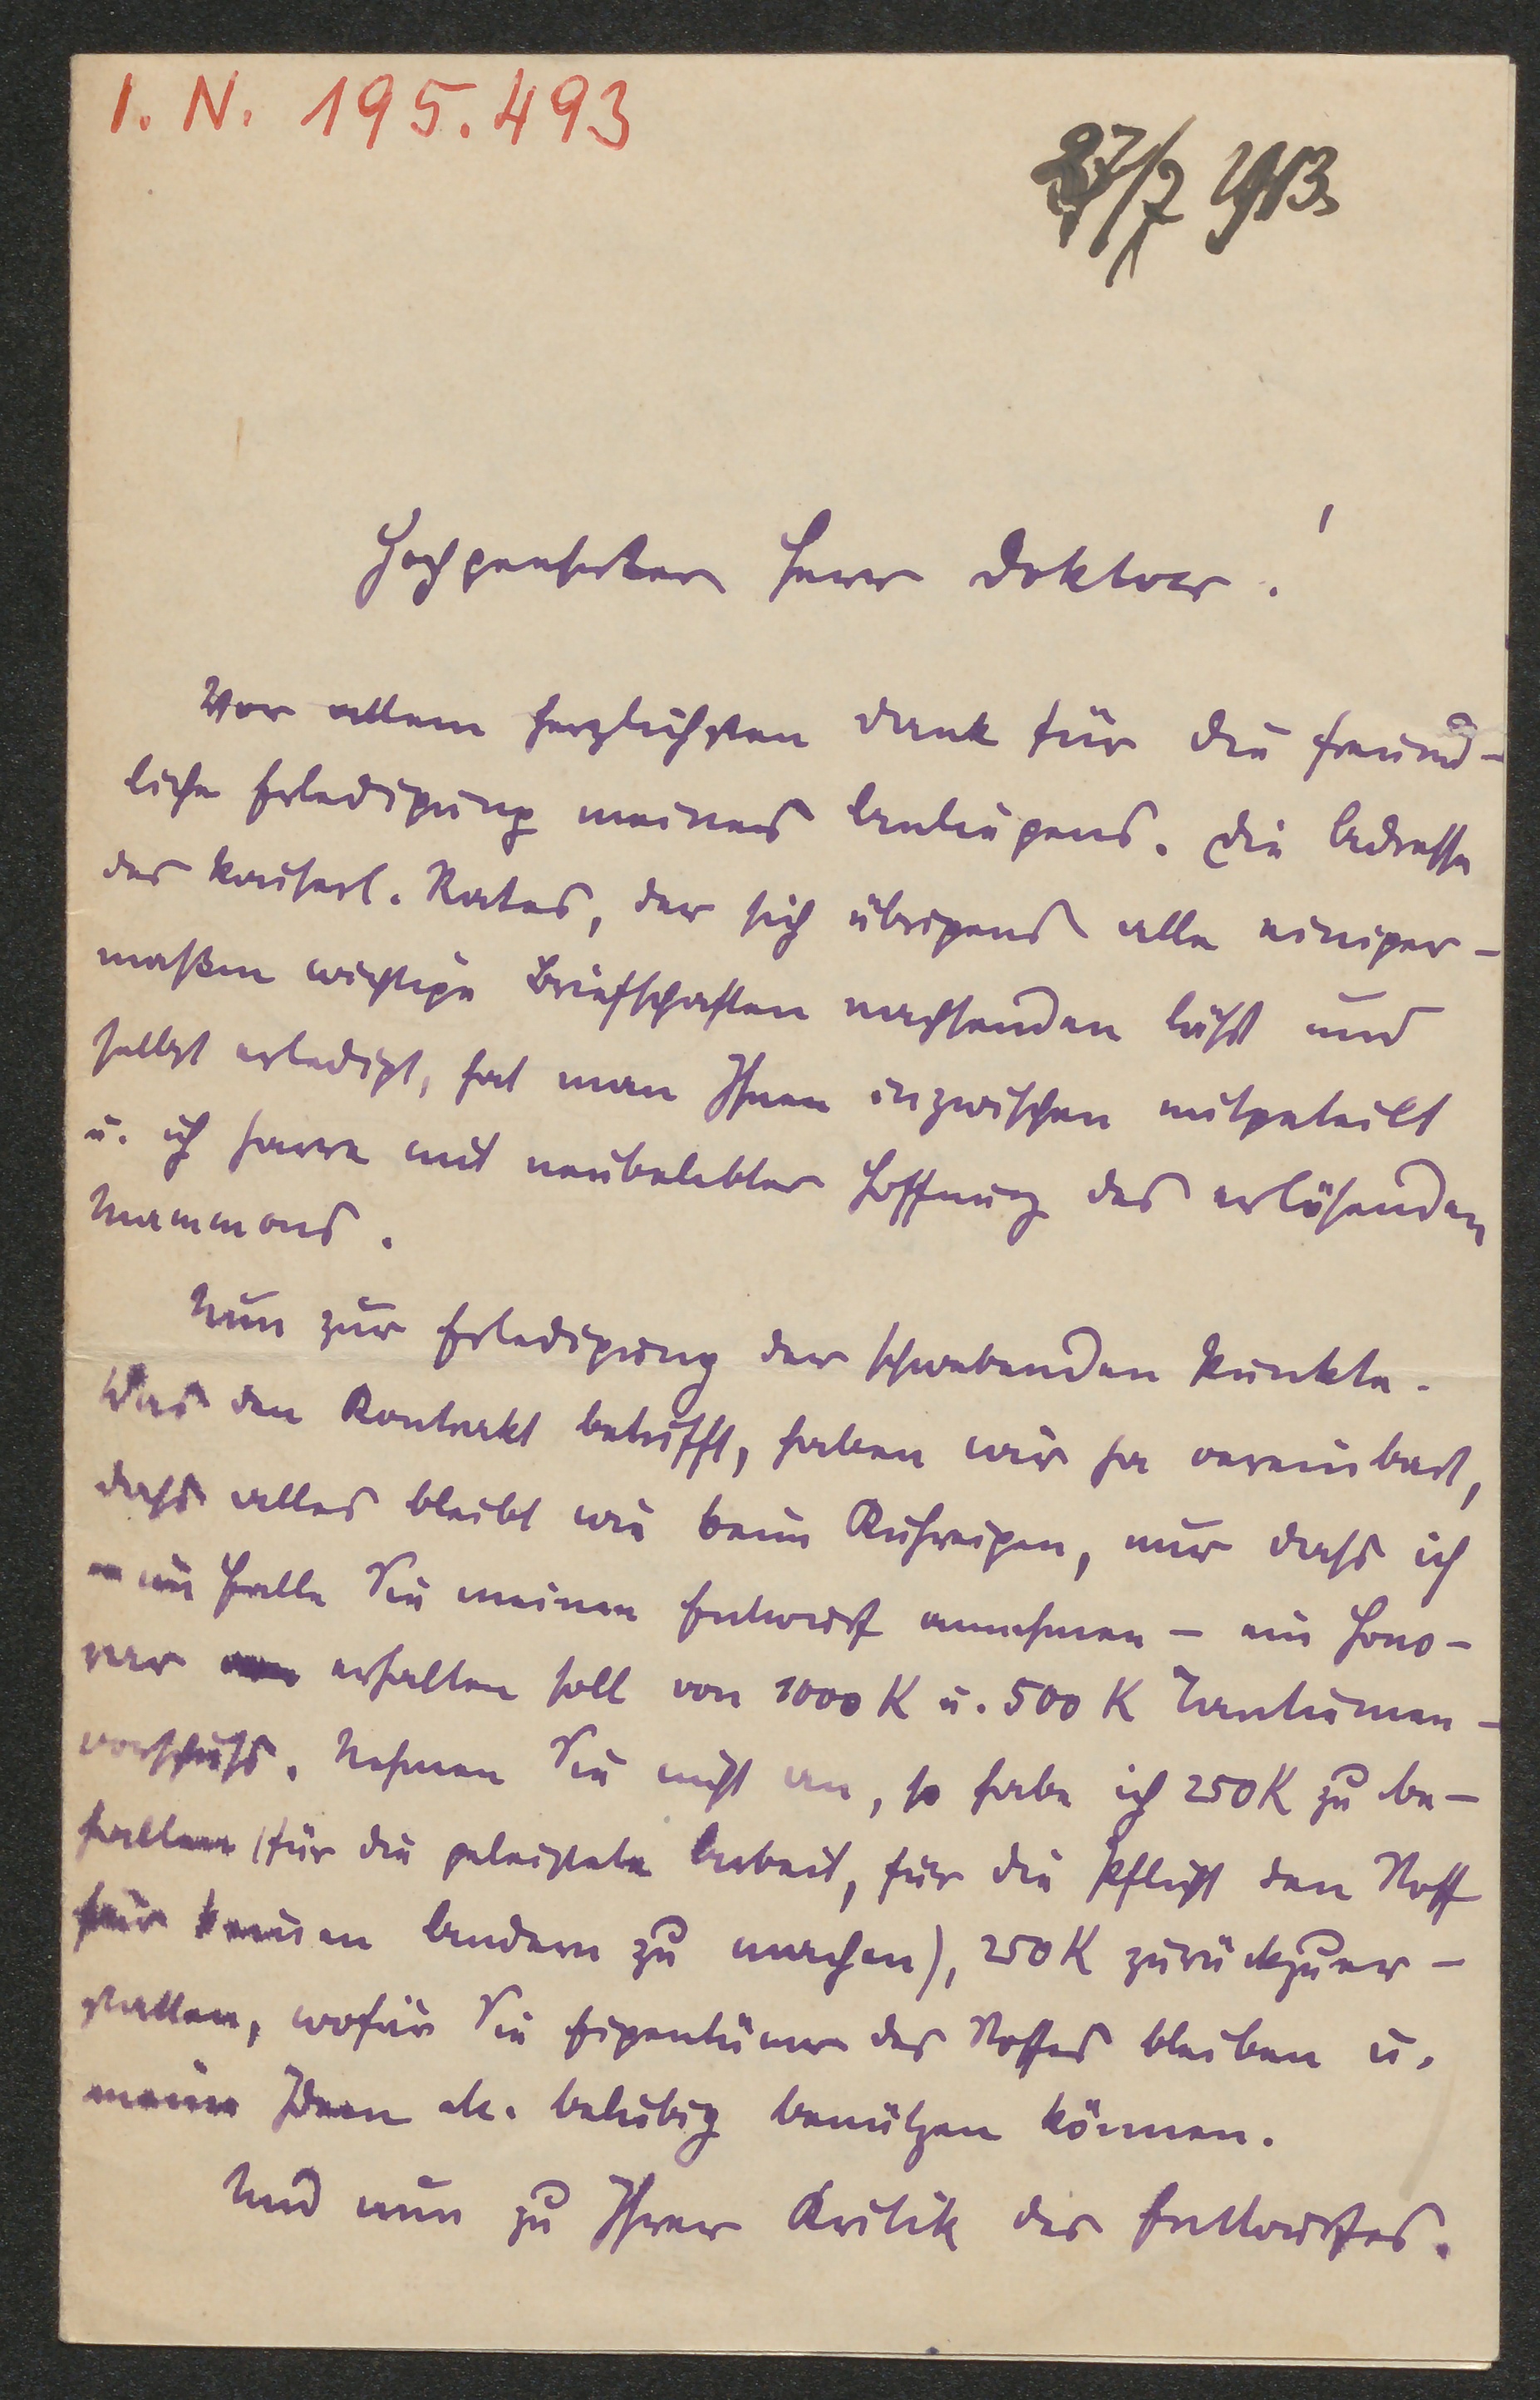 I. N. 195.493
27/7 1913
Hochgeehrter Herr Doktor!
Vor allem herzlichsten Dank für die freund-
liche Erledigung meines Anliegens. Die Adresse
des kaiserl. Rates, der sich übrigens alle einiger-
maßen wichtige Briefschaften nachsenden läßt und
selbst erledigt, hat man Ihnen inzwischen mitgeteilt
u. ich harre mit neubelebter Hoffnung des erlösenden
Mammons.
Nun zur Erledigung der schwebenden Punkte.
Was den Kontrakt betrifft, haben wir ja vereinbart,
dass alles bleibt wie beim Kuhreigen, nur dass ich
– im Falle Sie meinen Entwurf annehmen – ein Hono-
rar erhalten soll von 1000 K u. 500 K Tantiemen-
vorschuss. Nehmen Sie nicht an, so habe ich 250 K zu be-
halten (für die geleistete Arbeit, für die Pflicht den Stoff
für keinen Andern zu machen), 250 K zurückzuer-
statten, wofür Sie Eigentümer des Stoffes bleiben u.
meine Ideen etc. beliebig benützen können.
Und nun zu Ihrer Kritik des Entwurfes.